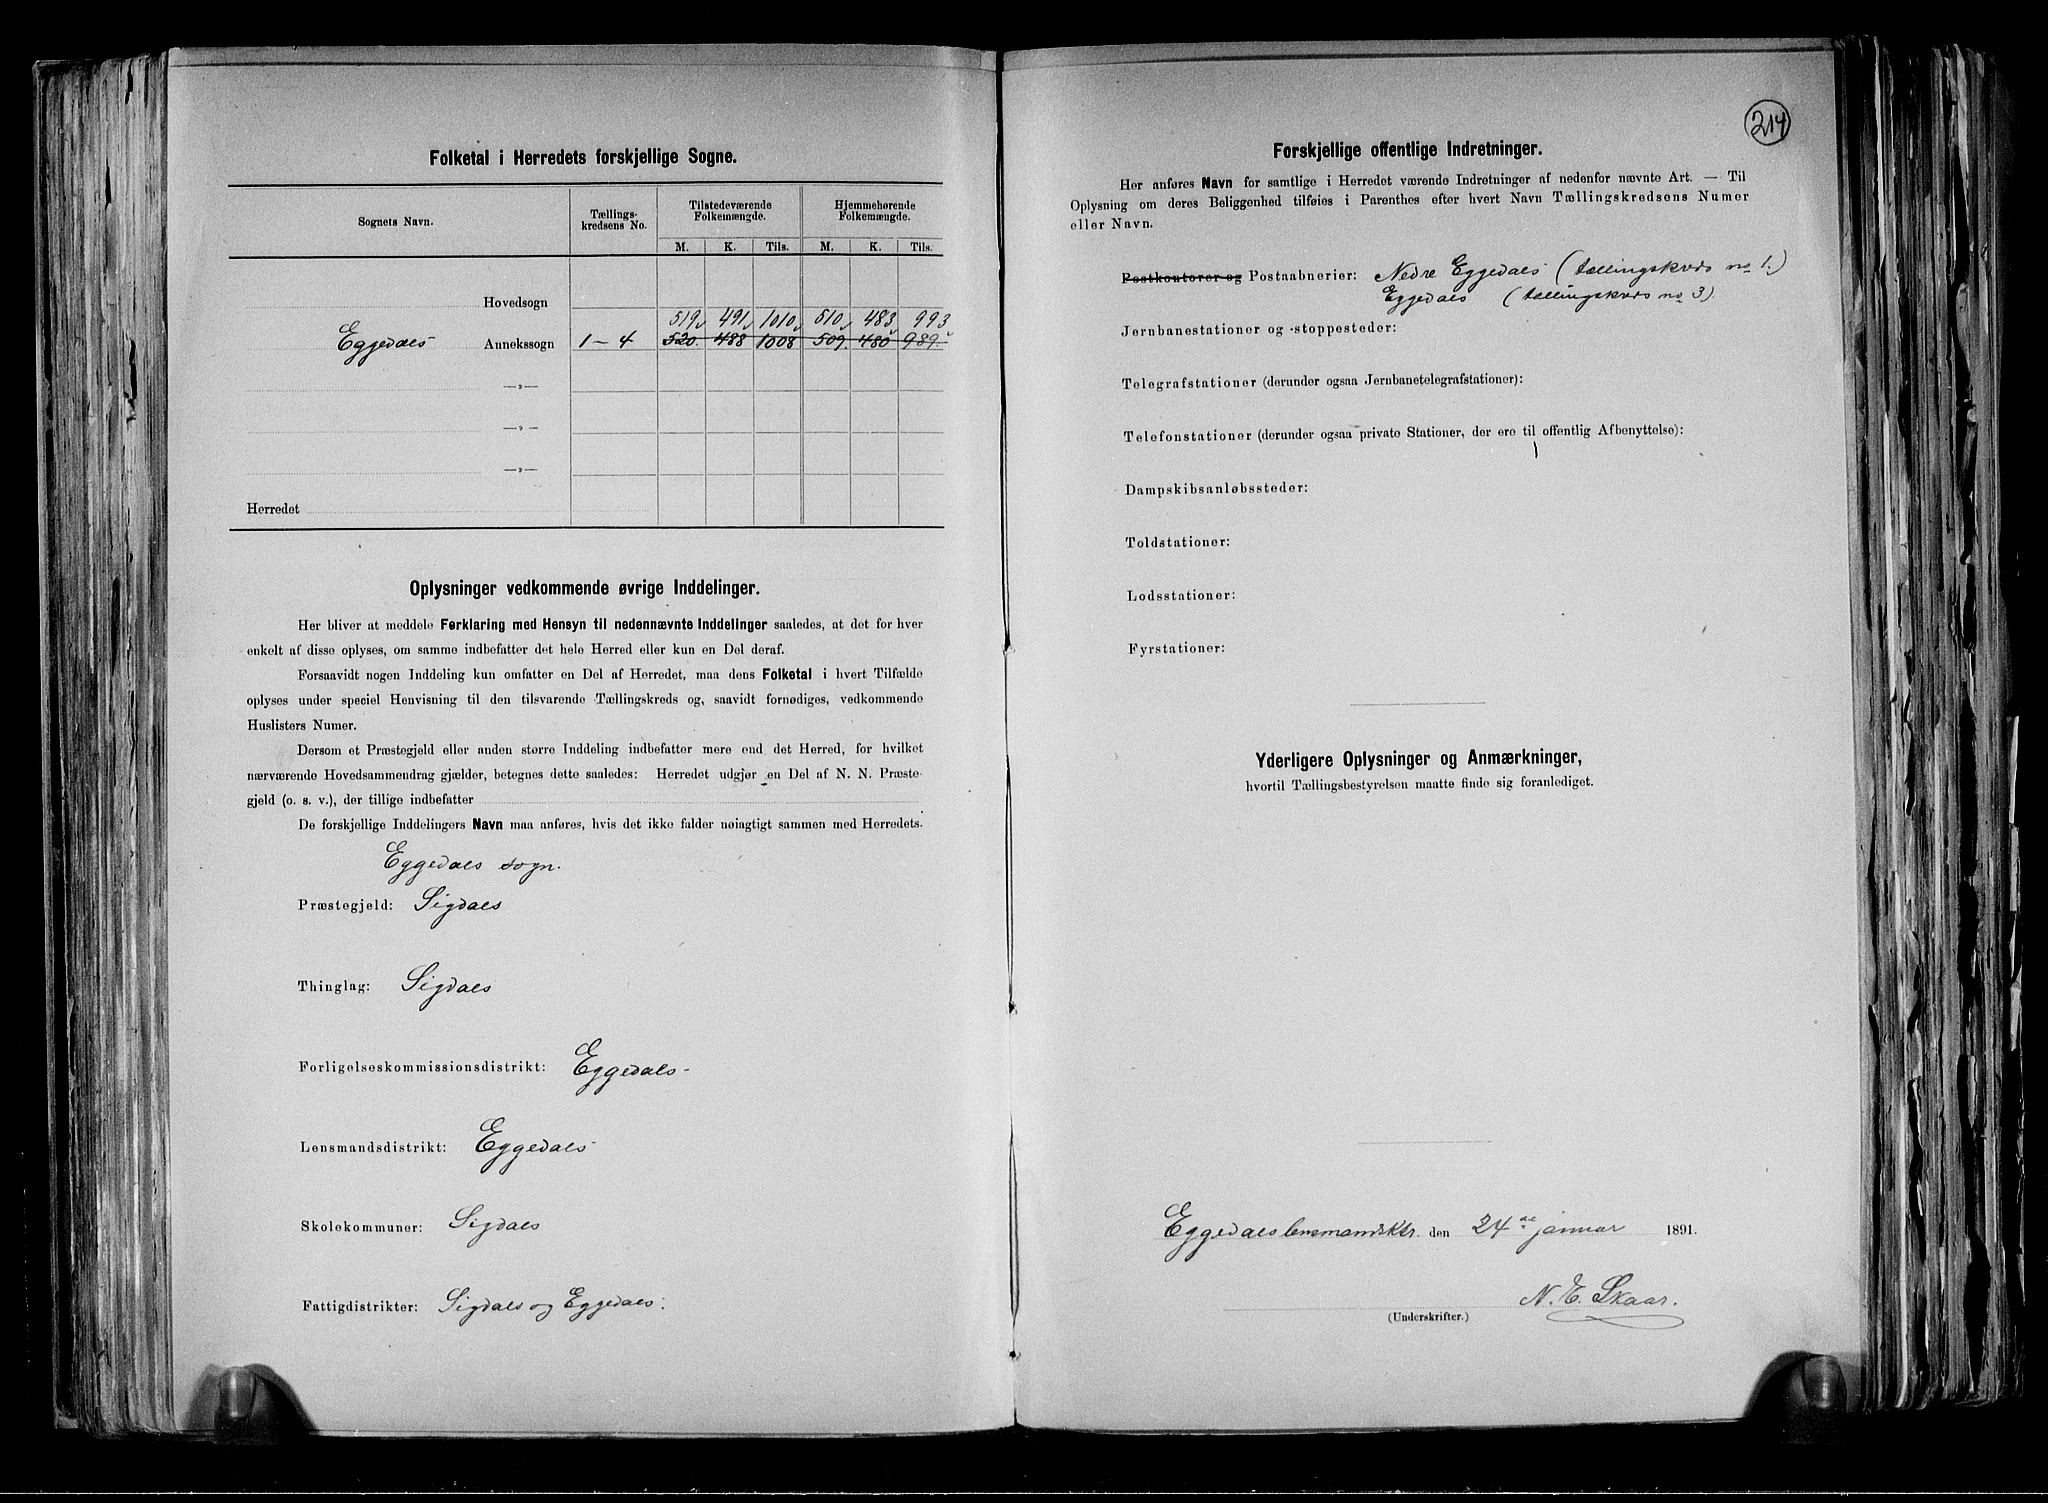 Folketal i Herredets forskjellige Sogne.
Sognets Navn.
Tællings-
kredsens No.
Tilstedeværende
Folkemængde.
Hjemmehørende
Folkemængde.
M. K. Tils. M. K. Tils.
Hovedsogn
519 491 1010 510 483 993
Eggedals Annekssogn 1-4 520. 488 1008 509. 480 989.
—„—
—„—
—„—
Herredet
Oplysninger vedkommende øvrige Inddelinger.
Her bliver at meddele Forklaring med Hensyn til nedennævnte Inddelinger saaledes, at det for hver
enkelt af disse oplyses, om samme indbefatter det hele Herred eller kun en Del deraf.
Forsaavidt nogen Inddeling kun omfatter en Del af Herredet, maa dens Folketal i hvert Tilfælde
oplyses under speciel Henvisning til den tilsvarende Tællingskreds og, saavidt fornødiges, vedkommende
Huslisters Numer.
Dersom et Præstegjeld eller anden større Inddeling indbefatter mere end det Herred, for hvilket
nærværende Hovedsammendrag gjælder, betegnes dette saaledes: Herredet udgjør en Del af N. N. Præste-
gjeld (o. s. v.), der tillige indbefatter
De forskjellige Inddelingers Navn maa anføres, hvis det ikke falder nøiagtigt sammen med Herredets.
Eggedals sogn.
Præstegjeld: Sigdals
Thinglag: Sigdals
Forligelseskommissionsdistrikt: Eggedals
Lensmandsdistrikt: Eggedals
Skolekommuner: Sigdals
Fattigdistrikter: Sigdals og Eggedals.
214
Forskjellige offentlige Indretninger.
Her anføres Navn for samtlige i Herredet værende Indretninger af nedenfor nævnte Art. — Til
Oplysning om deres Beliggenhed tilføies i Parenthes efter hvert Navn Tællingskredsens Numer
eller Navn.
Postkontorer og Postaabnerier: Nedre Eggedals (tællingskreds no 1.)
Eggedals (tællingskreds no 3).
Jernbanestationer og -stoppesteder:
Telegrafstationer (derunder ogsaa Jernbanetelegrafstationer):
Telefonstationer (derunder ogsaa private Stationer, der ere til offentlig Afbenyttelse):
Dampskibsanløbssteder:
Toldstationer:
Lodsstationer:
Fyrstationer:
Yderligere Oplysninger og Anmærkninger,
hvortil Tællingsbestyrelsen maatte finde sig foranlediget.
Eggedals lensmandsktr. den 24de januar 1891.
N. E. Skaar.
(Underskrifter.)